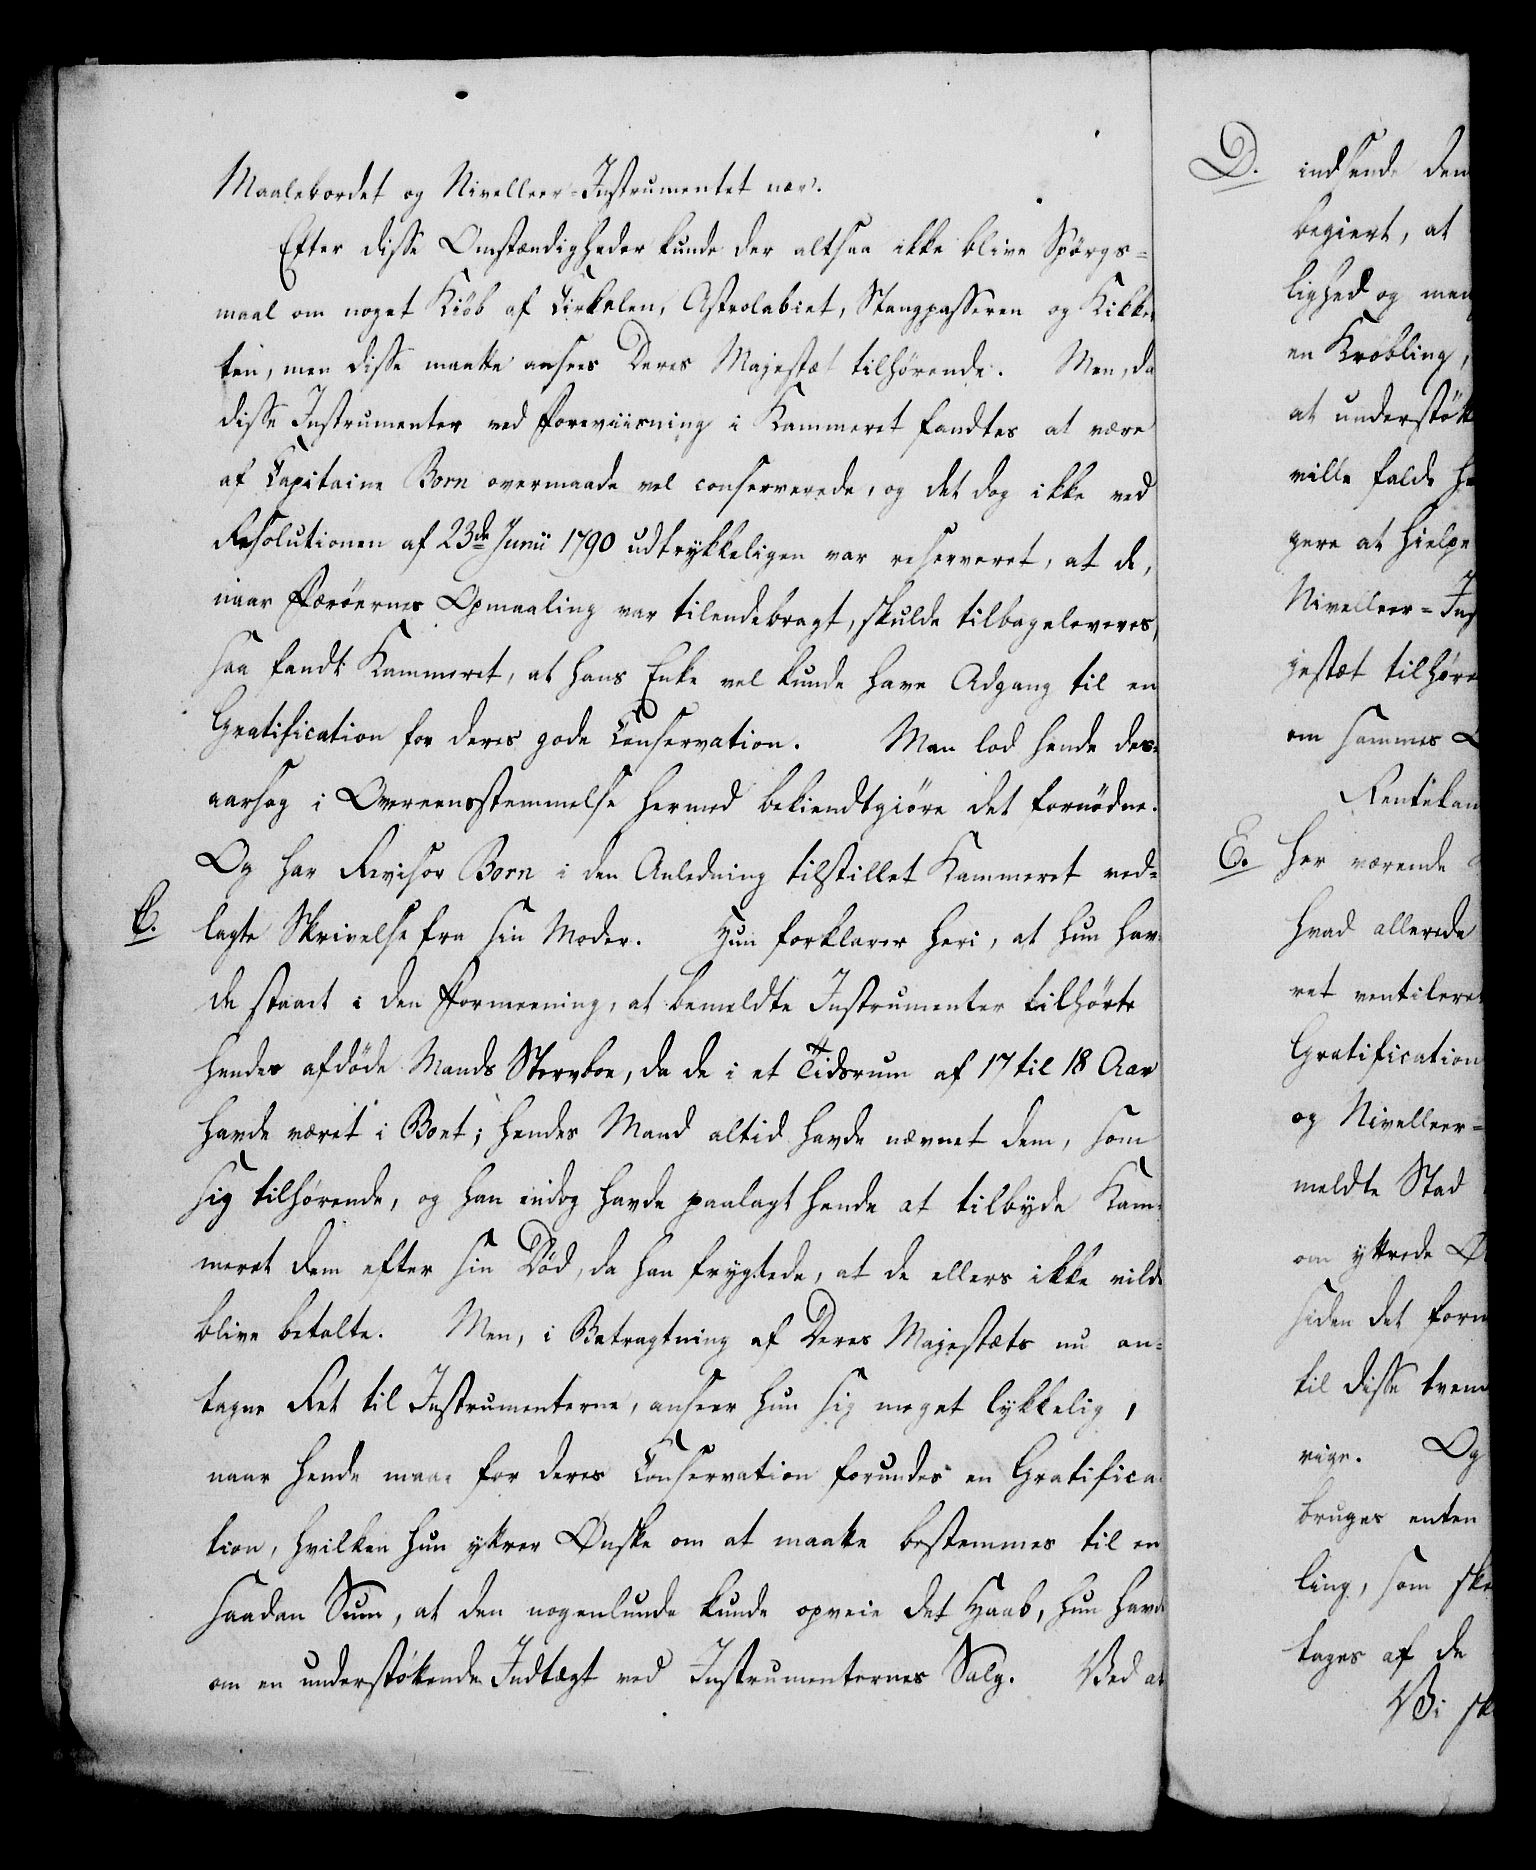 Maalebordet og Nivelleer-Instrumentet nær.
Efter disse Omstændigheder kunde der altsaa ikke blive Spörgs-
maal om noget Kiöb af Cirkelen, Astrolabiet, Stangpasseren og Kikker-
ten, men disse maatte ansees Deres Majestæt tilhørende. Men, da
disse Instrumenter ved Foreviisning i Kammeret fandtes at være
af Capitaine Born overmaade vel conserverede, og det dog ikke ved
Resolutionen af 23de Junii 1790 udtrykkeligen var reserveret, at de,
naar Færöernes Opmaaling var tilendebragt, skulde tilbageleveres,
saa fandt Kammeret, at hans Enke vel kunde have Adgang til en
Gratification for deres gode Conservation. Man lod hende des-
aarsag i Overeensstemmelse hermed bekiendtgiöre det fornödne.
Og har Revisor Born i den Anledning tilstillet Kammeret ved-
C. lagte Skrivelse fra sin Moder. Hun forklarer heri, at hun hav-
de staaet i den Formeening, at bemeldte Instrumenter tilhørte
hendes afdöde Mands Sterbboe, da de i et Tidsrum af 17 til 18 Aar
havde været i Boet; hendes Mand altid havde nævnet dem, som
sig tilhørende, og han endog havde paalagt hende at tilbyde Kam-
meret dem efter sin Död, da han frygtede, at de ellers ikke vilde
blive betalte. Men, i Betragtning af Deres Majestæts nu an-
tagne Ret til Instrumenterne, anseer hun sig meget lykkelig,
naar hende maae for deres Conservation forundes en Gratifica-
tion, hvilken hun yttrer Ønske om at maatte bestemmes til en
saadan Sum, at den nogenlunde kunde opveie det Haab, hun havde
om en understøttende Indtægt ved Instrumenternes Salg. Ved at
D. indsende den
begiert, at
lighed og men
en Krøbling,
at understøtt
ville falde
gere at hielpe
Nivelleer-Ins
jestæt tilhøre
om sammes
Rentekam
E. her værende
hvad allerede
ret ventileret
Gratification
og Nivelleer-
meldte Stad
om yttrede
siden det forn
til disse tvend
rige. Og
bruges enten
ling, som ska
tages af de
Vi sk